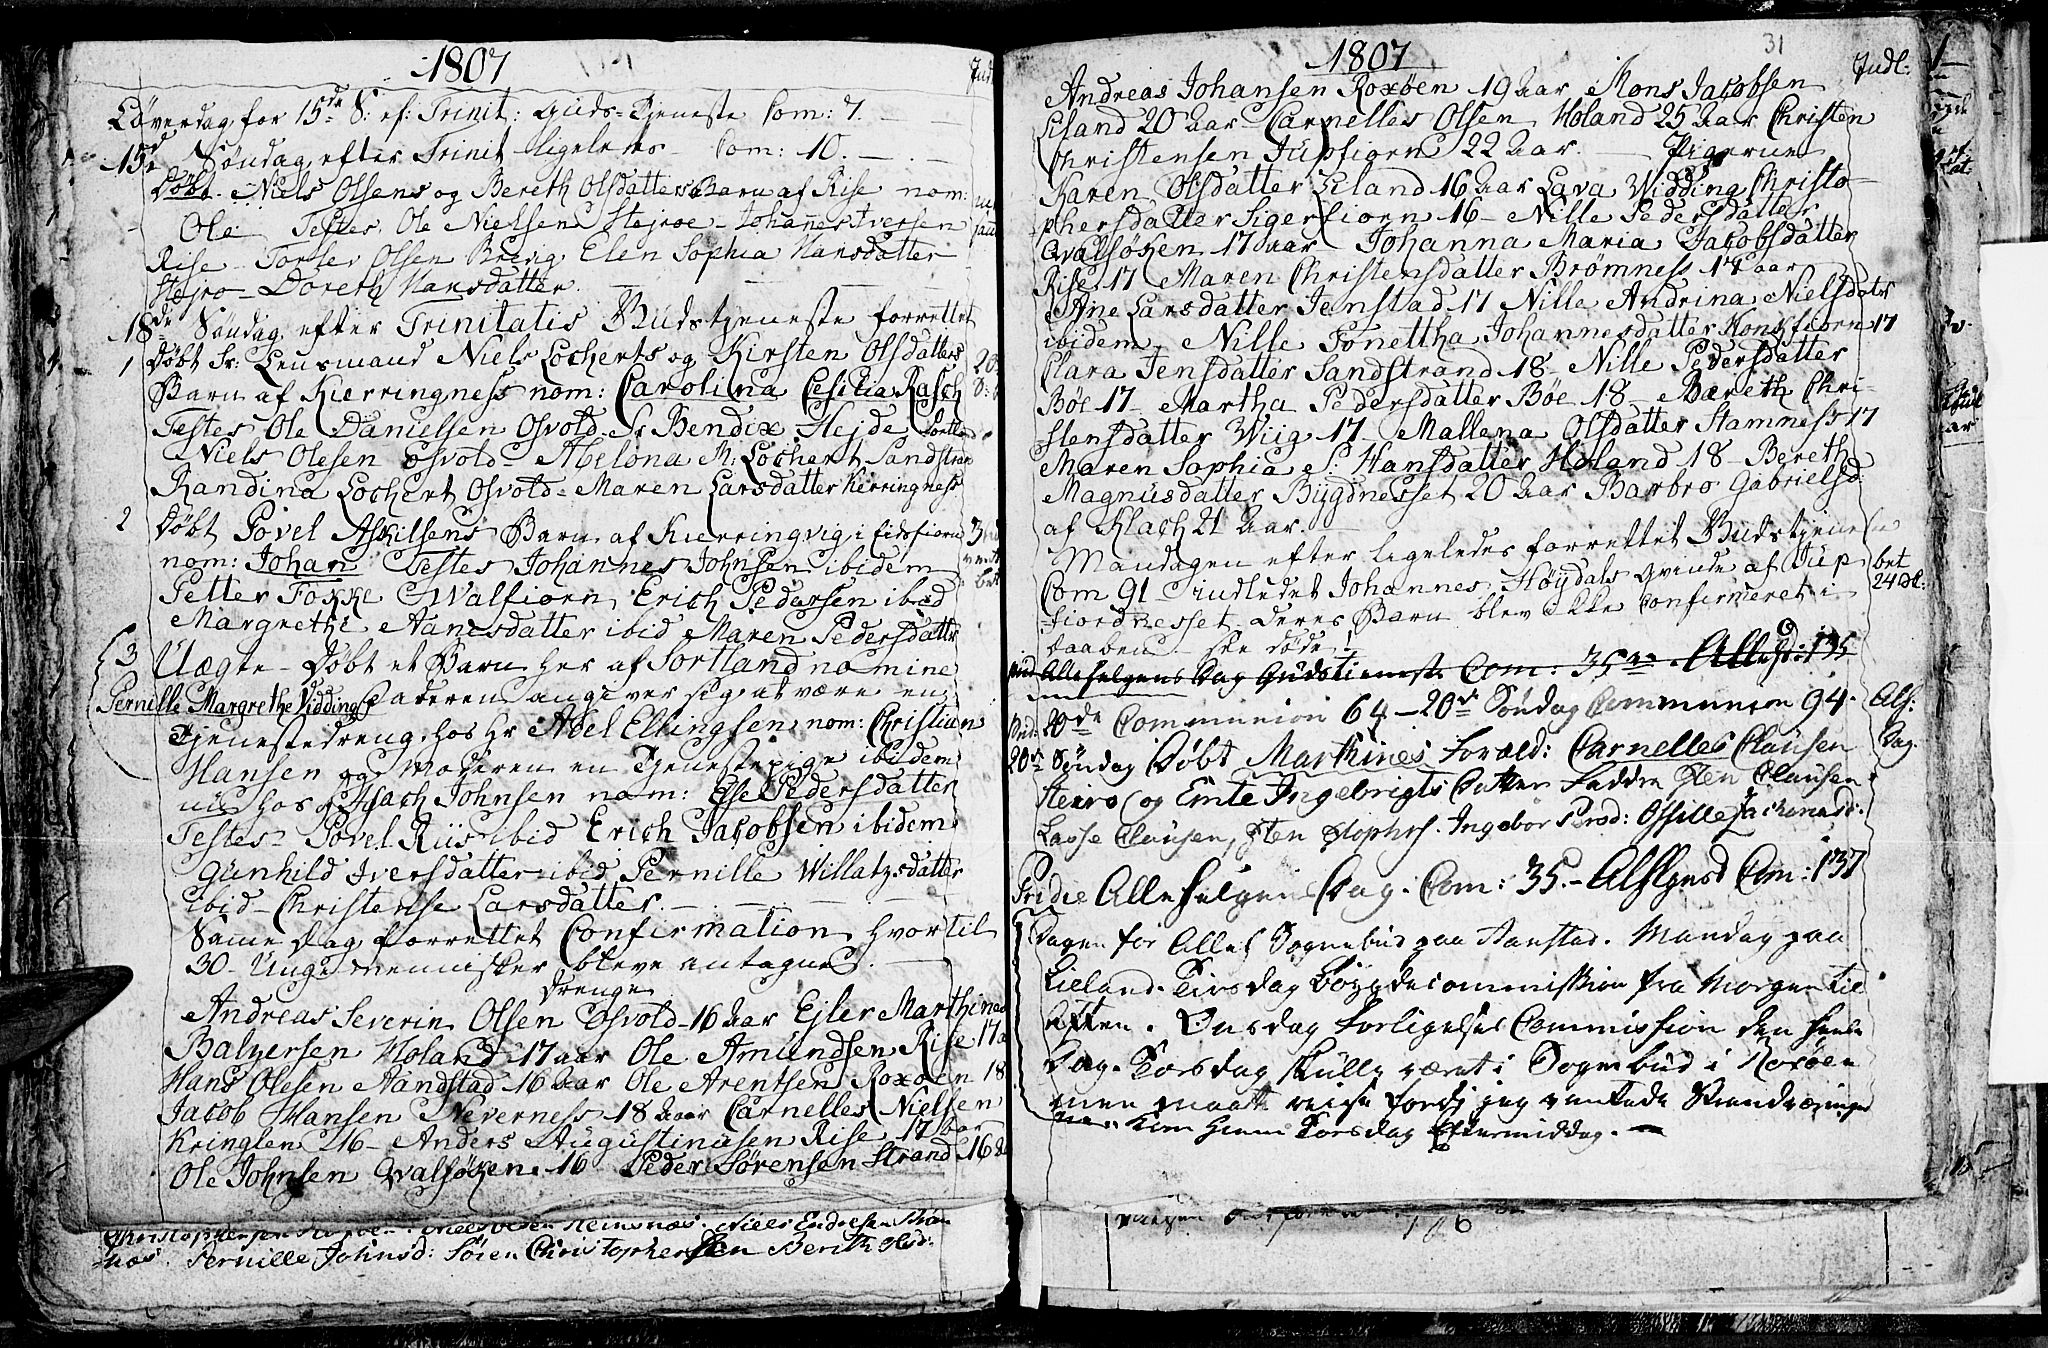 1807
Løverdag for 15de S: ef: Trinit: Guds-Tjeneste Com: 7.
15de Søndag efter Trinit ligeledes Com: 10.
Døbt Niels Olsens og Bereth Olsdatters Barn af Rise nom:
Ole Testes Ole Nielsen Stejroe - Johannes Iversen
Rise - Torlev Olsen Brevig Elen Sophia Hansdatter
Stejro - Doreth Hansdatter
18de Søndag efter Trinitatis Budstjeneste forrettet
1 Døbt Sr: Lensmand Niels Locherts og Kirsten Olsdatters
Barn af Kierringness nom: Carolina Cesilia Rasch
Testes Ole Danielsen Osvold - Sr Bendix Hejde Sortland
Niels Olesen Osvold - Abelona M: Lochert Sandstran
Randina Lochert Osvold - Maren Larsdatter Kerringness
2 Døbt Povel Askilsens Barn af Kierringvig i Eidsfiorn
nom: Johan Testes Johannes Johnsen ibidem
Petter Fokke Walfiorn Erich Pedersen ibid
Margrethe Hansdatter ibid Maren Pedersdatter
3 Uægte - Døbt et Barn her af Sortland nomine
Pernille Margrethe Vidding Faderen angiver sig at være en
Tjenestedreng hos Hr Abel Ellingsen nom: Christian
Hansen og Moderen en Tjenestepige ibidem
nu hos Isach Johnsen nom: Else Pedersdatter
Testes - Povel Riis ibid Erich Jacobsen ibidem
Gunhild Iversdatter ibid Pernille Willatzsdatter
ibid - Christense Larsdatter.
Same dag forrettet Confirmation hvortil
30 - Unge Mennisker bleve antagne
Drenge
Andreas Severin Olsen Osvold - 16 Aar Ejler Marthinus
Baltzersen Holand 17 aar Ole Amundsen Rise 17 a
Hans Olesen Aandstad 16 Aar Ole Arentsen Roxøen 18
Jacob Hansen Neverness 18 Aaar Carnelles Nielsen
Kringlen 16 - Anders Augustinusen Rise 17 bar
Ole Johnsen Qvalsøken 16 Peder Sørensen Strand 16 Aa
Niels Endresen
Pernille Johnsd: Søren Christophersen Berith Olsd:
1807
31
Indl:
Andreas Johansen Roxøen 19 Aar Mons Jacobsen
Liland 20 Aar - Carnelles Olsen Holand 25 Aar Christen
Christensen Jupfiorn 22 Aar. Pigerne
Karen Olsdatter Liland 16 Aar Lava Widding Christo-
phersdatter Sigerfiorn 16 - Nille Pedersdatter
Qvalsøken 17 aar Johanna Maria Jacobsdatter
Rise 17 Maren Christensdatter Brømness 17 aar
Ane Larsdatter Jenstad 17 Nille Andrina Nielsdatr
ibidem Nille Fonettha Johannesdatter Kongfiorn 17
Clara Jensdatter Sandstrand 18 - Nille Pedersdatter
Bøe 17 - Martha Pedersdatter Bøe 18 - Bereth Chri-
stensdatter Wiig 17 - Mallena Olsdatter Stamness 17
Maren Sophia S: Hansdatter Holand 18 - Bereth
Magnusdatter Bygdnesset 20 Aar Barbro Gabrielsd:
af Klach 21 Aar
Mandagen efter ligeledes forrettet Budstjeneste
Com 91 - indledet Johannes Høydals Qvinde af Jup bet
fiordnesset deres Barn blev ikke confirmeret i 24 sl:
daaben - see døde
Allehelgens Dag Gudstieneste Com: 35
20de Communion 64 - 20de Søndag Communion 94. Alh:
20de Søndag Døbt Marthines Foræld: Carnelles Clausen Dag.
Steiro og Ente Ingebrigts Datter Faddre Sten Clausen
Lasse Clausen, Sten Stophers. Ingebor Persd: Ossille Zachariasd:
Pridie Allehelgens Dag. Com: 35. - Com: 137
Dagen før Alleh Sognebud paa Aanstad. Mandag paa
Lieland. Tirsdag Bøygdecommission fra Morgen til
Aften. Onsdag Forligelses Commission den heele
Dag. Torsdag skulle været i Sognebud i Roxøen
men maatte reise fordi jeg ventede
Kom hiem Torsdag Eftermiddag.